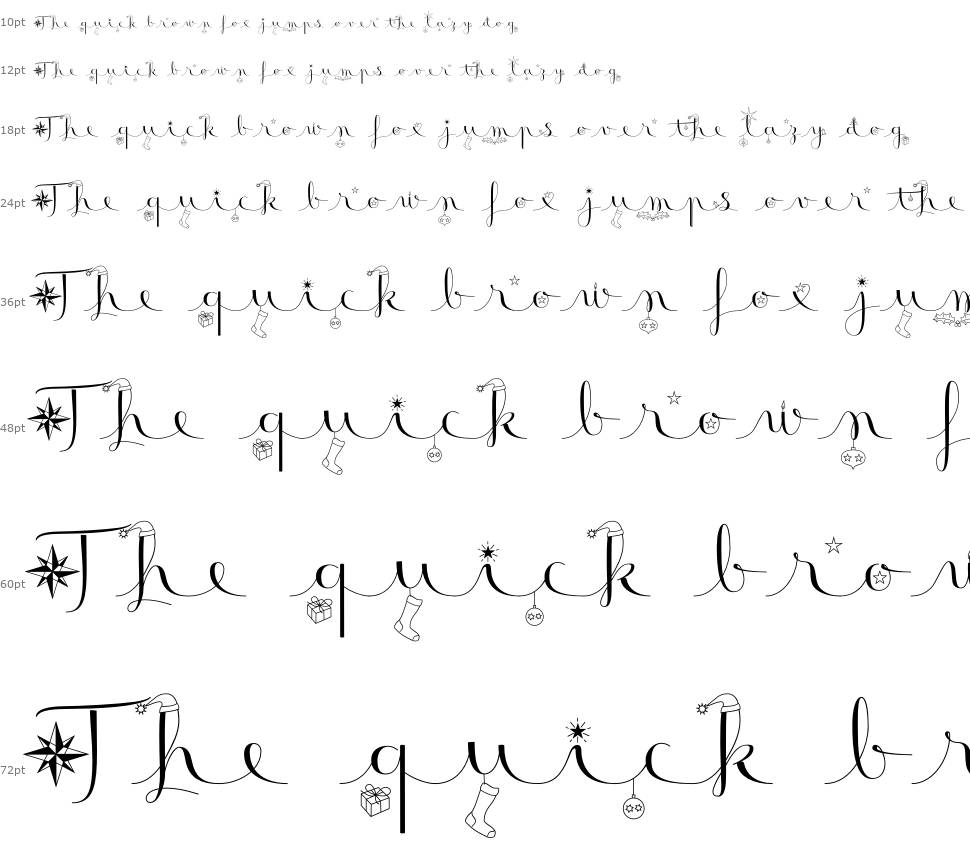 10pt The quick brown fox jumps over the lazy dog
12pt The quick brown fox jumps over the lazy dog
18pt The quick brown fox jumps over the lazy dog
24pt The quick brown fox jumps over the
36pt The quick brown fox jum
48pt The quick brown f
60pt The quick brow
72pt The quick br